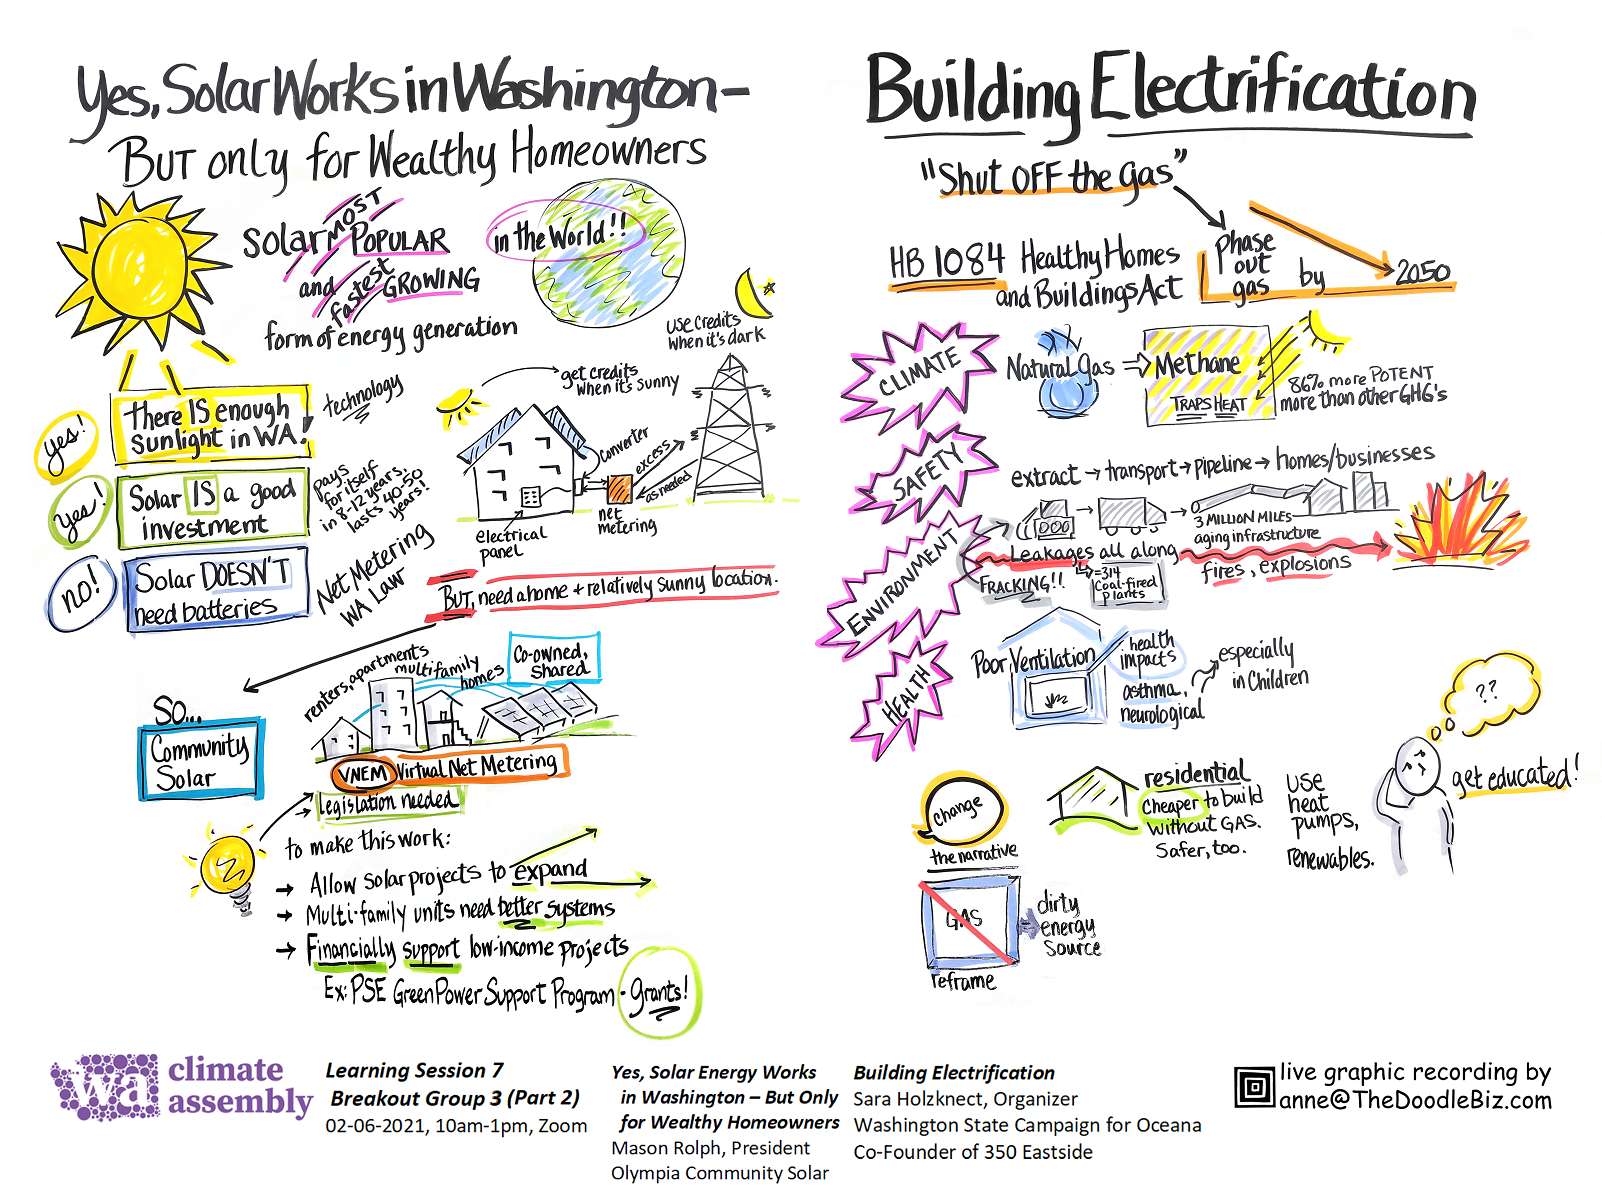 Yes, Solar Works in Washington –
But only for Wealthy Homeowners
solar MOST POPULAR
and fastest GROWING
form of energy generation
in the World!!
use credits
when it's dark
get credits
when it's sunny
yes!
there IS enough
sunlight in WA!
technology
yes!
Solar IS a good
investment
pays
for itself
in 8-12 years,
lasts 40-50
years!
no!
Solar DOESN'T
need batteries
Net Metering
WA Law
converter
excess
as needed
net
metering
electrical
panel
BUT, need a home + relatively sunny location.
So...
Community
Solar
renters, apartments
multifamily
homes
Co-owned,
shared
VNEM Virtual Net Metering
→ legislation needed
to make this work:
→ Allow solar projects to expand
→ Multi-family units need better systems
→ Financially support low-income projects
Ex: PSE Green Power Support Program - grants!
Building Electrification
"Shut OFF the gas"
HB 1084 Healthy Homes
and Buildings Act
Phase
out
gas by 2050
CLIMATE
Natural Gas ⇒ Methane
TRAPS HEAT
86% more POTENT
more than other GHG's
SAFETY
extract → transport → pipeline → homes/businesses
3 MILLION MILES
aging infrastructure
Leakages all along
fires, explosions
ENVIRONMENT
FRACKING!!
=314
Coal-fired
plants
HEALTH
Poor Ventilation
health
impacts
asthma,
neurological
especially
in Children
change
the narrative
residential
Cheaper to build
without GAS.
Safer, too.
USE
heat
pumps,
renewables.
??
get educated!
GAS
reframe
dirty
energy
source
wa climate
assembly
Learning Session 7
Breakout Group 3 (Part 2)
02-06-2021, 10am-1pm, Zoom
Yes, Solar Energy Works
in Washington – But Only
for Wealthy Homeowners
Mason Rolph, President
Olympia Community Solar
Building Electrification
Sara Holzknect, Organizer
Washington State Campaign for Oceana
Co-Founder of 350 Eastside
live graphic recording by
anne@TheDoodleBiz.com